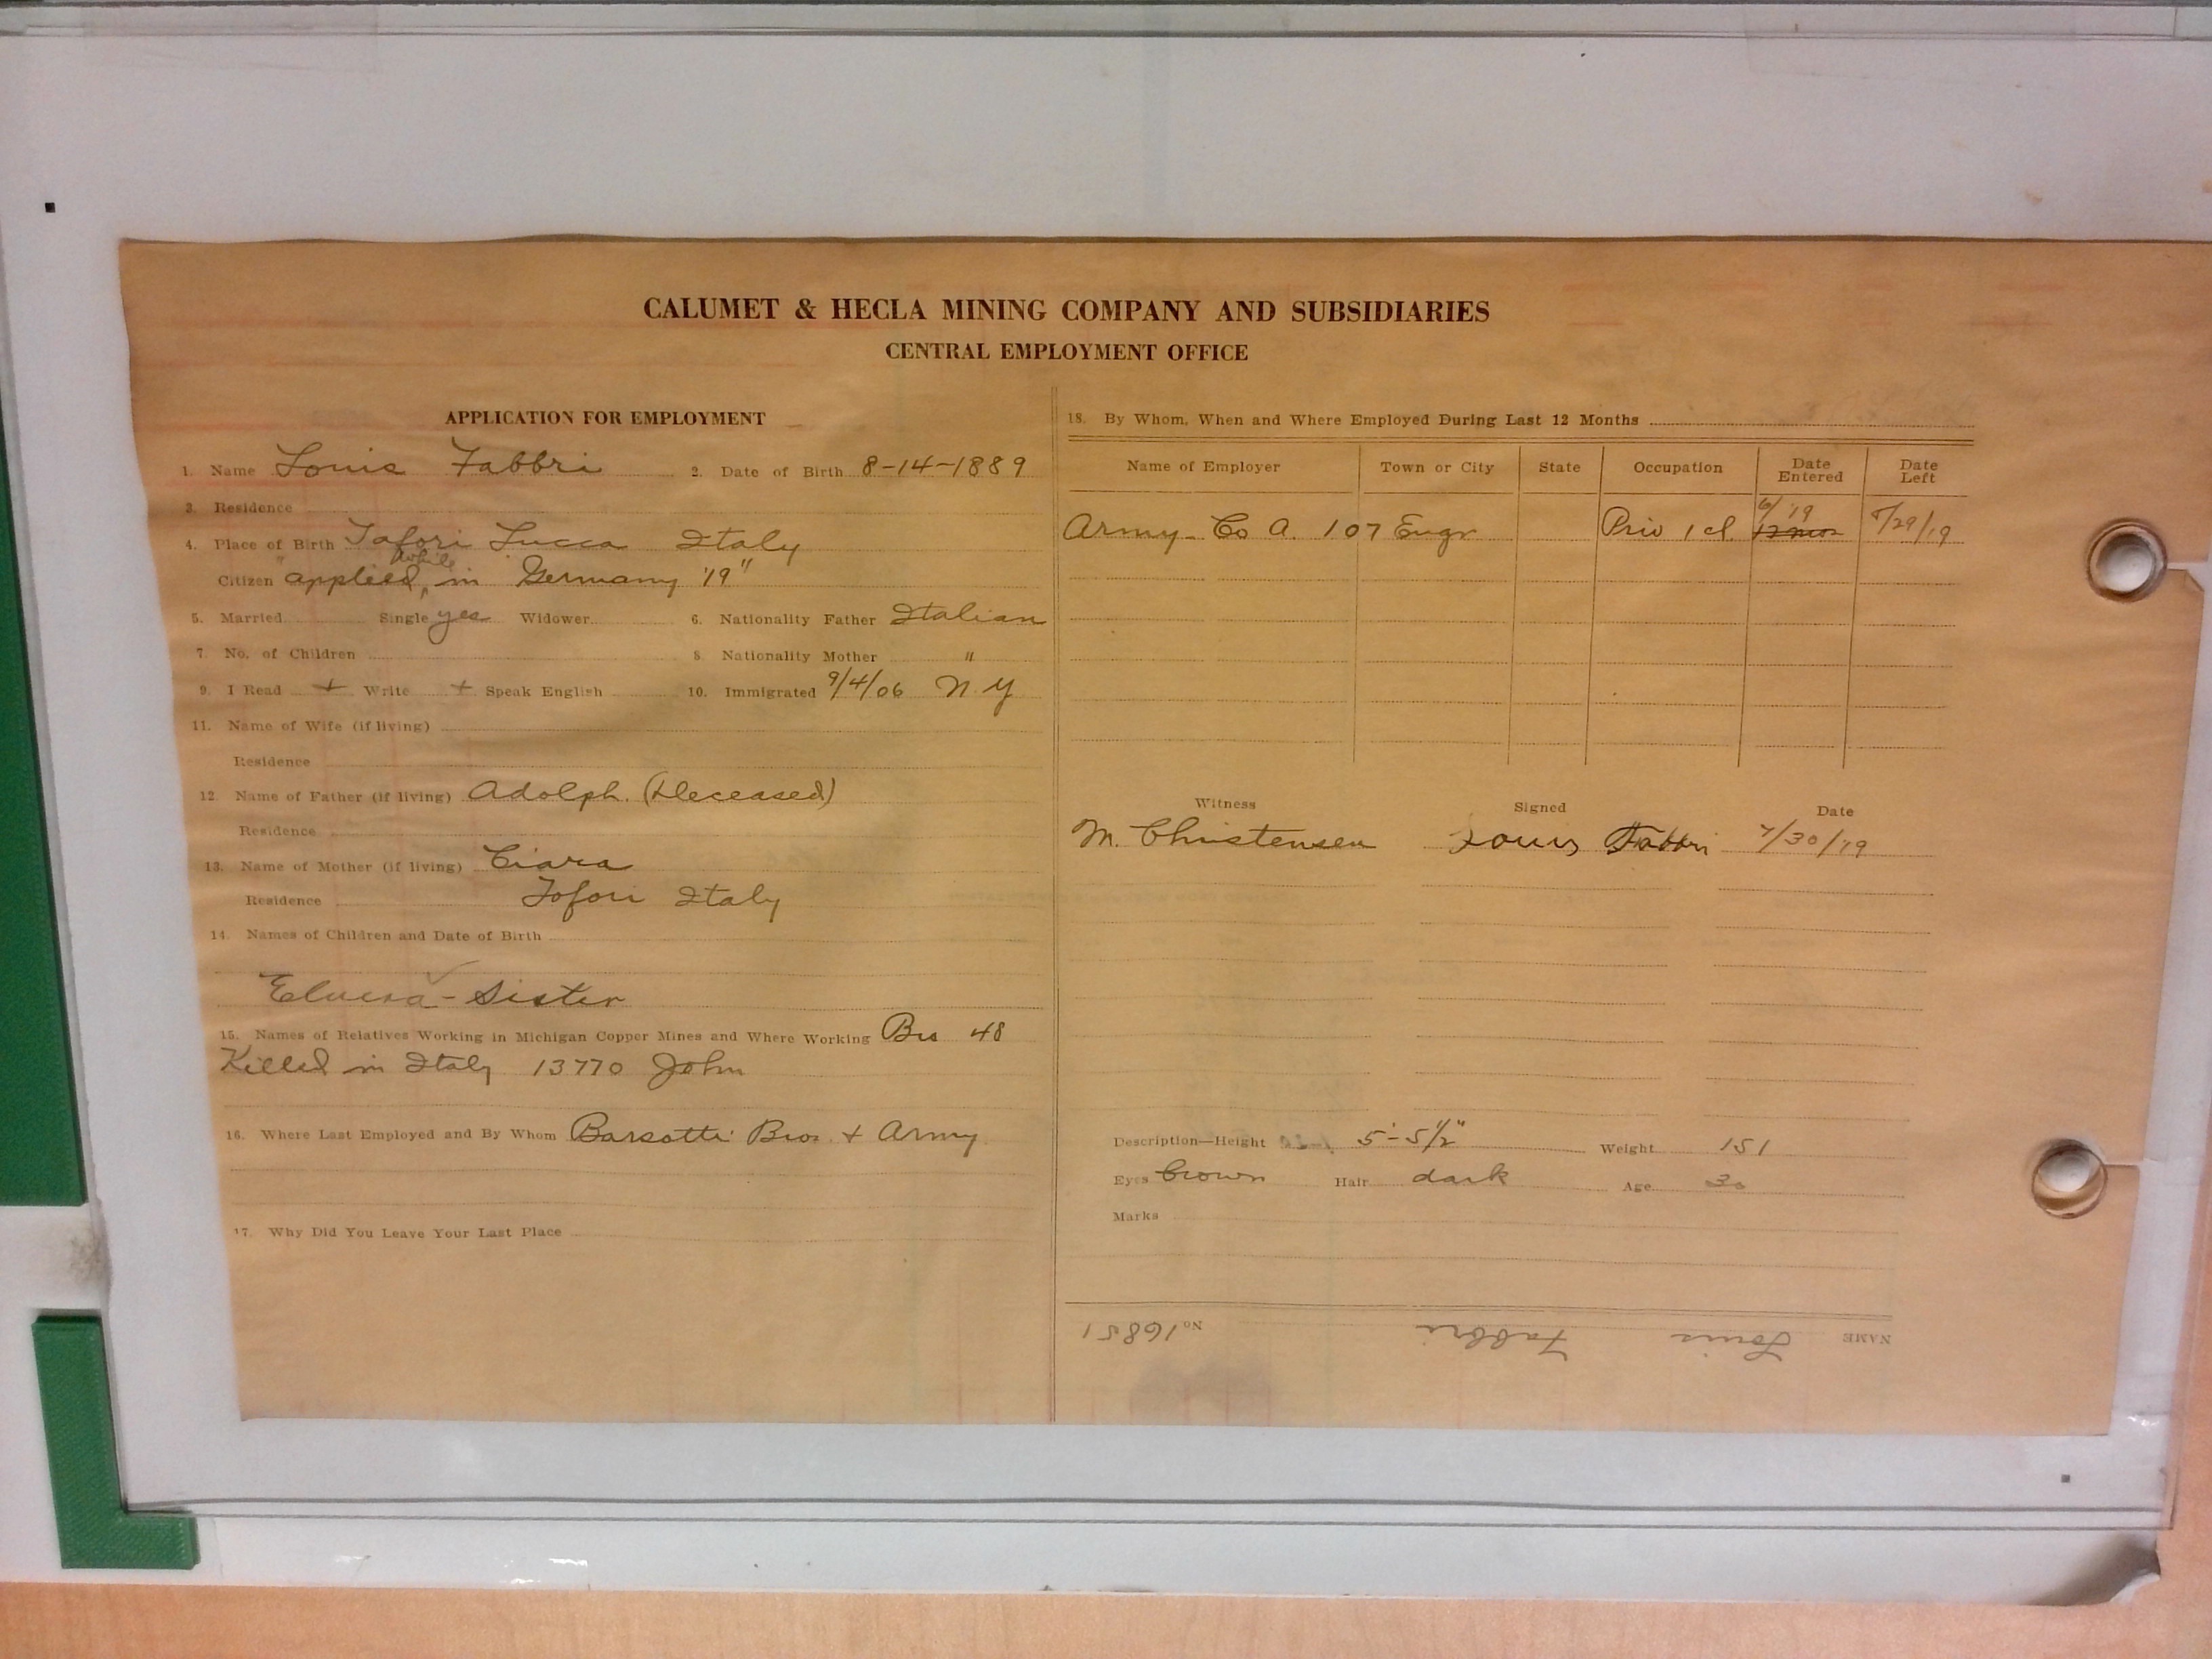 CALUMET & HECLA MINING COMPANY AND SUBSIDIARIES
CENTRAL EMPLOYMENT OFFICE
APPLICATION FOR EMPLOYMENT
1. Name Louis Fabbri 2. Date of Birth 8-14-1889
3. Residence
4. Place of Birth Tafori Lucca Italy
while
Citizen "applied, in Germany '19"
5. Married Single yes Widower
6. Nationality Father Italian
7. No. of Children
8. Nationality Mother "
9. I Read + Write + Speak English
10. Immigrated 9/4/06 N.Y
11. Name of Wife (if living)
Residence
12. Name of Father (if living) Adolph. (Deceased)
Residence
13. Name of Mother (if living) Ciara
Residence Tofori Italy
14. Names of Children and Date of Birth
- Sister
15. Names of Relatives Working in Michigan Copper Mines and Where Working Bro 48
Killed in Italy 13770 John
16. Where Last Employed and By Whom Barsotti Bros. + Army
17. Why Did You Leave Your Last Place
18. By Whom, When and Where Employed During Last 12 Months
Name of Employer Town or City State Occupation Date Entered Date Left
6/'19
Army - Co A. 107 Engr Priv 1 cl. 12 mos /29/19
Witness Signed Date
M. Christensen Louis Fabbri 7/30/19
Description—Height 5'-5½" Weight 151
Eyes brown Hair dark Age 30
Marks
NAME Louis Fabbri No. 16851